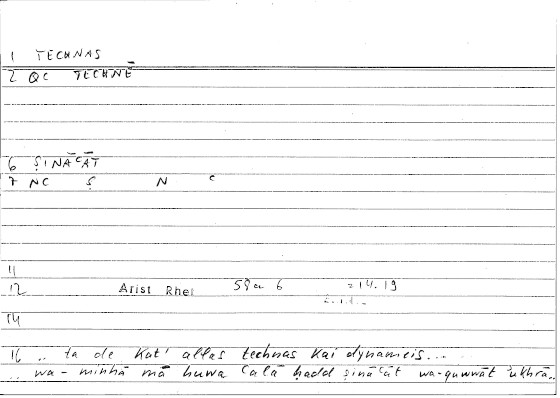 1 TECHNAS
2 QC TECHNĒ
6 ṢINĀʿĀT
7 NC Ṣ N ʿ
11
12 Arist Rhet 59a 6 = 14.19
14
16 .. ta de kat' allas technas kai dynameis...
.. wa-minhā mā huwa ʿalā ḥadd ṣināʿāt wa-quwwāt ʾukhrā..